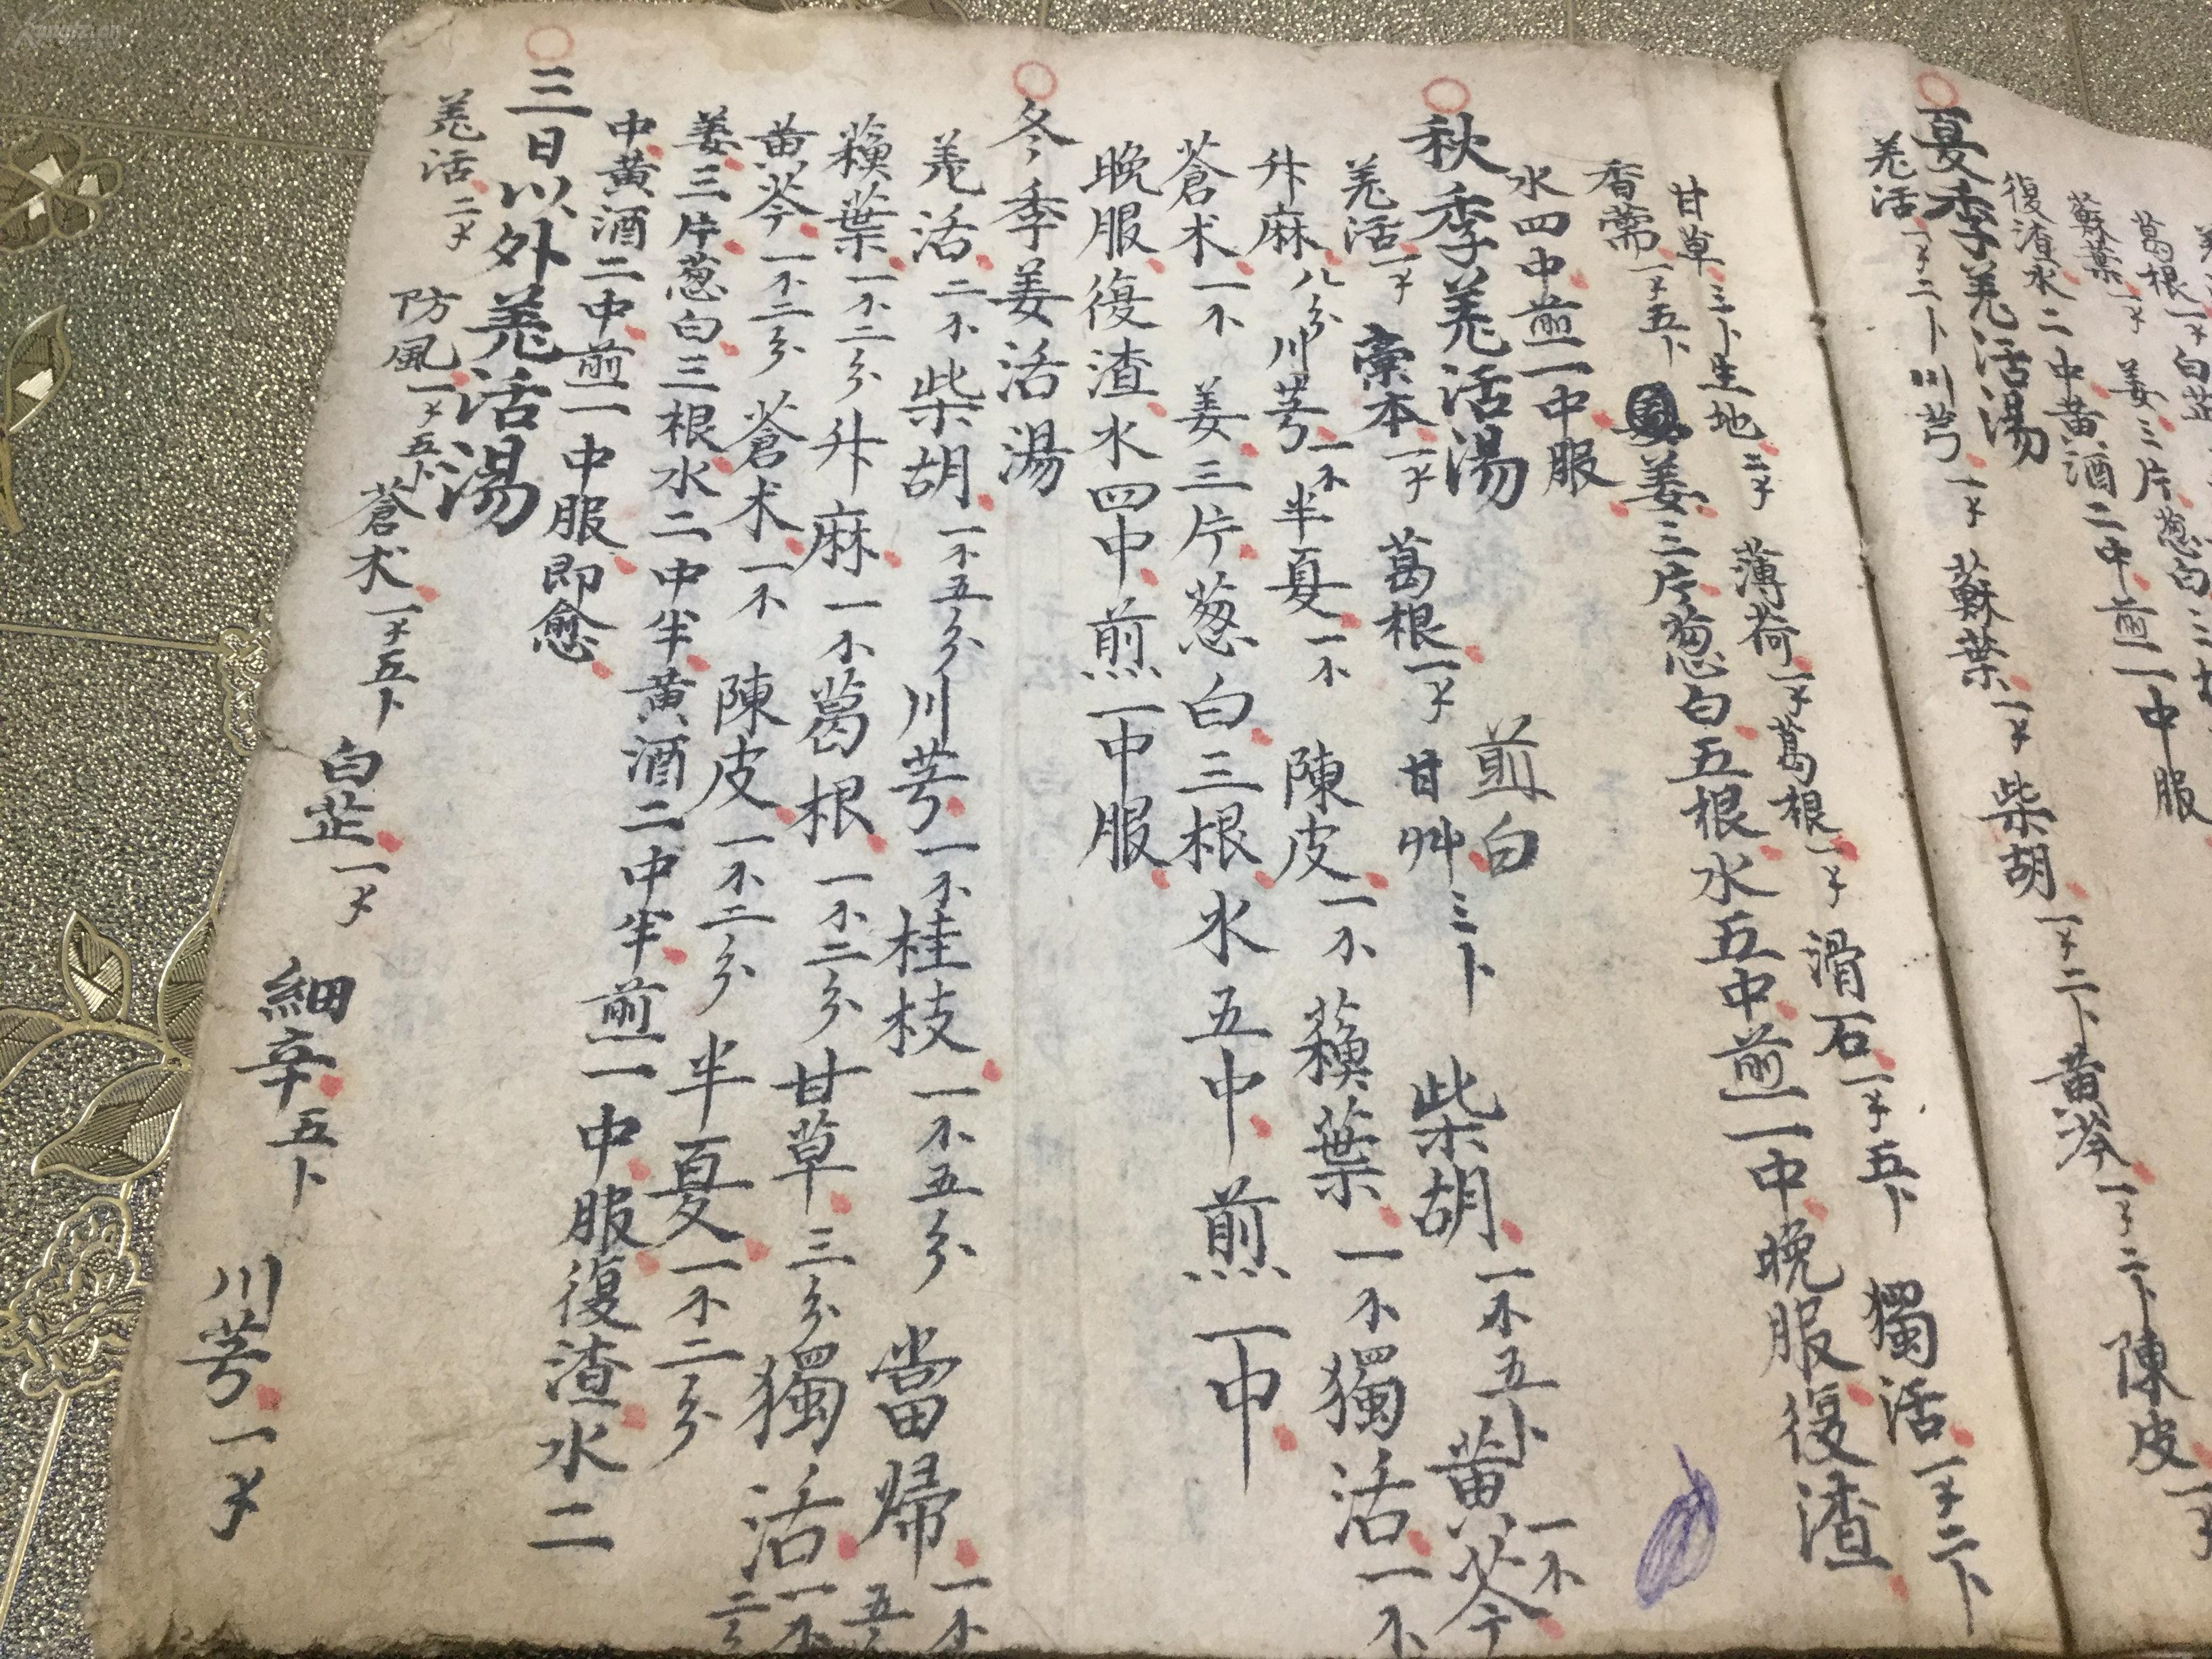 葛根一才白芷
蘇葉一才姜三片葱白三
復渣水二中黃酒二中煎一中服
夏季羗活湯
羗活一才二卜川芎一才蘇葉一才柴胡一才二卜黃芩一才二卜陳皮一才
甘草三卜生地二才薄荷一才葛根一才滑石一才五卜獨活一才二卜
香薷一才五卜姜三片葱白五根水五中煎一中晚服復渣
水四中煎一中服
秋季羗活湯
羗活一才藁本一才葛根一才甘艸三卜柴胡一不五卜黃芩一不
煎白
升麻八分川芎一不半夏一不陳皮一不蘓葉一不獨活一不
蒼术一不姜三片葱白三根水五中煎一中
晚服復渣水四中煎一中服
冬季姜活湯
羗活二不柴胡一不五分川芎一不桂枝一不五分當歸一不五
蘓葉一不二分升麻一不葛根一不二分甘草三分獨活一不二
黃芩一不二分蒼术一不陳皮一不二分半夏一不二分
姜三片葱白三根水二中半黃酒二中半煎一中服復渣水二
中黃酒二中煎一中服即愈
三日以外羗活湯
羗活二才防風一才五卜蒼术一才五卜白芷一才細辛五卜川芎一才